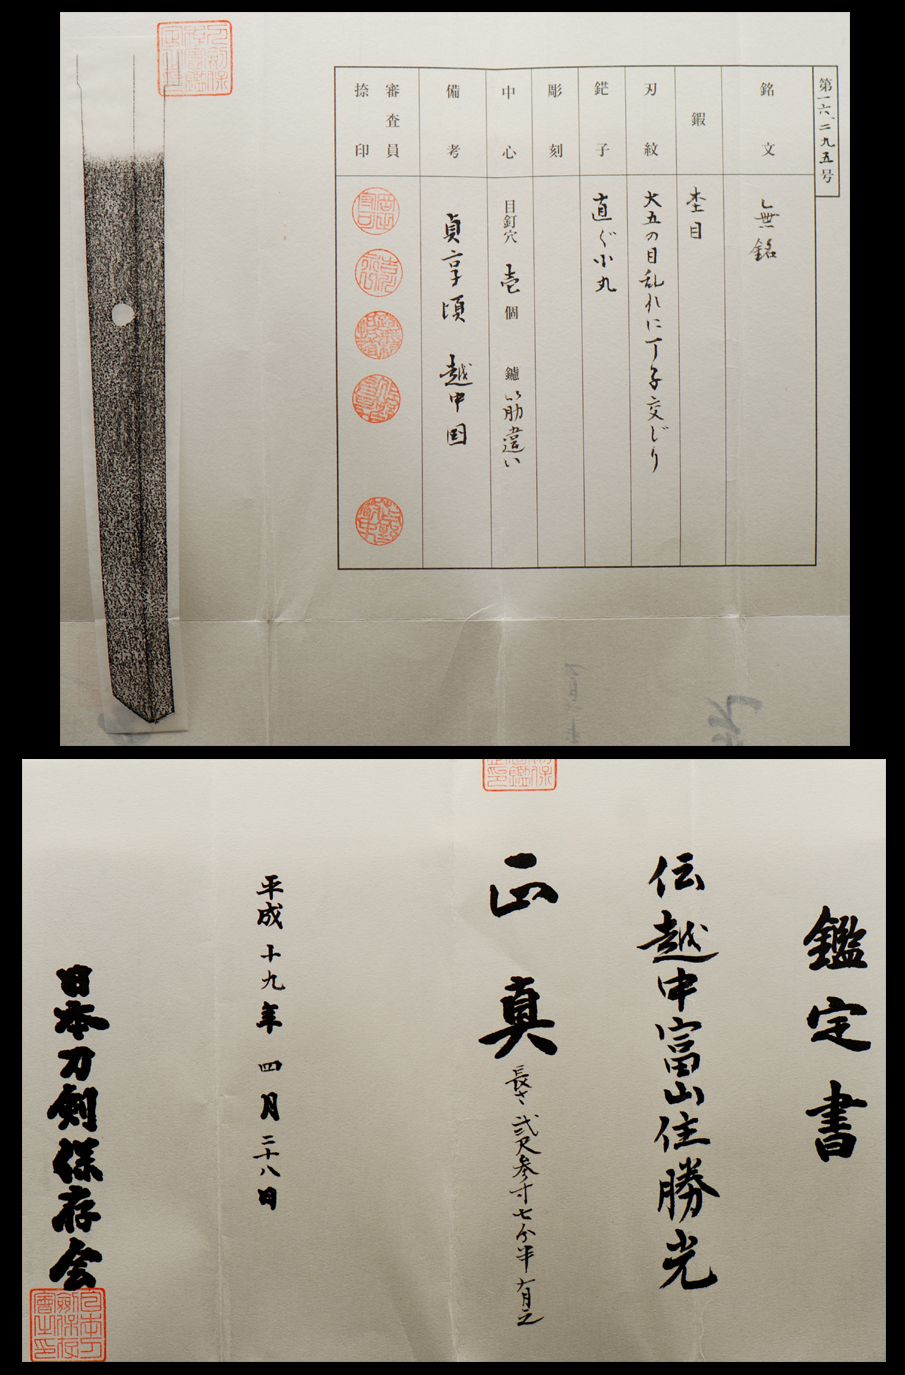 第一六、二九五号
銘文
無銘
鍜
杢目
刃紋
大五の目乱れに丁子交じり
鋩子
直ぐ小丸
彫刻
中心
目釘穴 壱個 鑢 筋違い
備考
貞享頃 越中国
審査員
捺印
鑑定書
伝越中富山住勝光
正真
長さ 弐尺参寸七分半有之
平成十九年四月二十八日
日本刀剣保存会